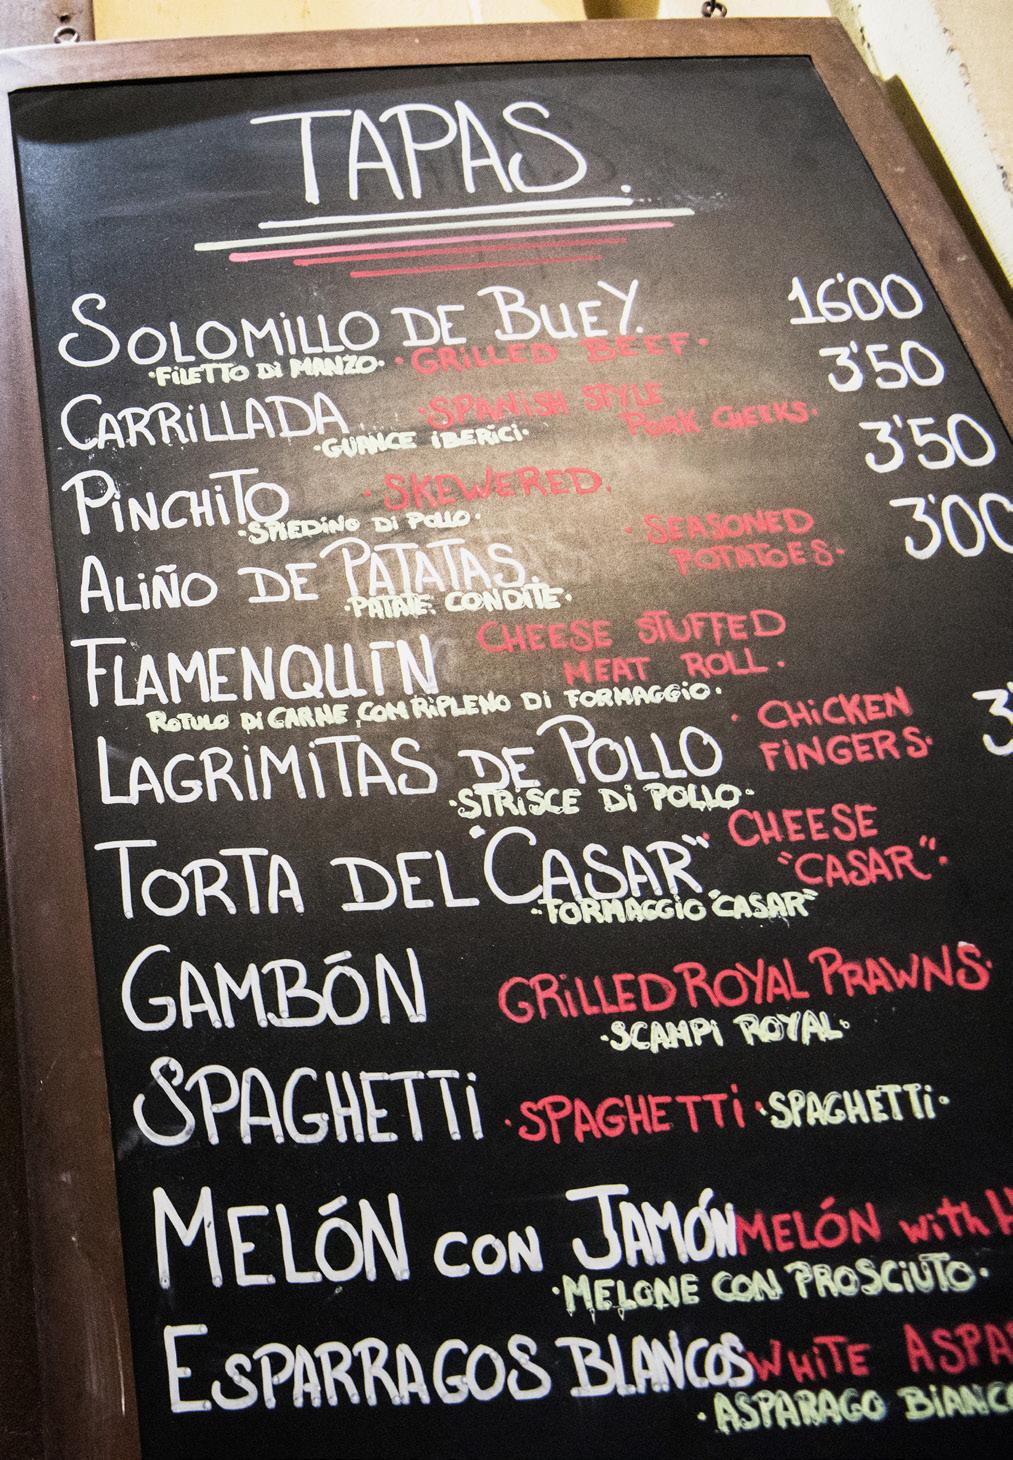 TAPAS.
SOLOMILLO DE BUEY. 16'00
·FILETTO DI MANZO· ·GRILLED BEEF·
CARRILLADA ·SPANISH STYLE PORK CHEEKS· 3'50
·GUANCE IBERICI·
PINCHITO ·SKEWERED. 3'50
·SPIEDINO DI POLLO·
ALIÑO DE PATATAS. ·SEASONED POTATOES· 3'00
·PATATE CONDITE·
FLAMENQUÍN CHEESE STUFFED MEAT ROLL.
ROTULO DI CARNE CON RIPLENO DI FORMAGGIO.
LAGRIMITAS DE POLLO ·CHICKEN FINGERS· 3'
·STRISCE DI POLLO·
TORTA DEL "CASAR" ·CHEESE "CASAR".
·FORMAGGIO "CASAR"
GAMBÓN GRILLED ROYAL PRAWNS·
·SCAMPI ROYAL·
SPAGHETTI ·SPAGHETTI· ·SPAGHETTI·
MELÓN CON JAMÓN MELÓN with H
·MELONE CON PROSCIUTO·
ESPARRAGOS BLANCOS WHITE ASPA
·ASPARAGO BIANCO